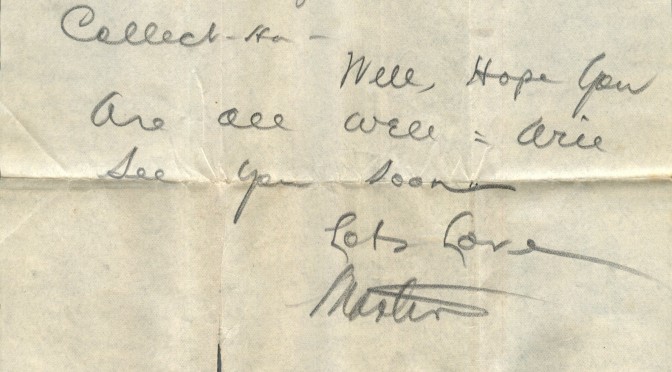 Collect - Ha -
Well, Hope You
Are all well = Will
See you soon -
Lots Love